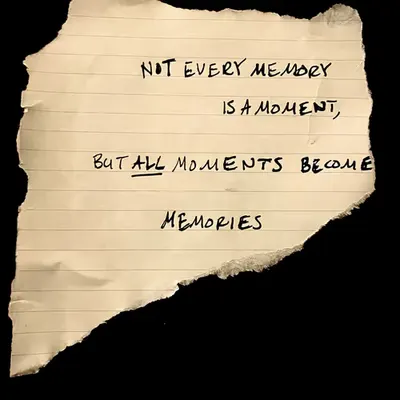 NOT EVERY MEMORY
IS A MOMENT,
BUT ALL MOMENTS BECOME
MEMORIES